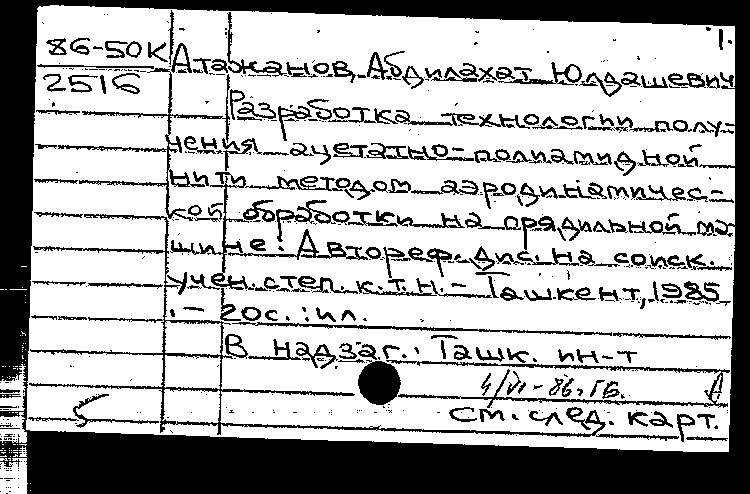 1.
86-50К Атажанов, Абдилахат Юлдашевич
2516
Разработка технологии полу-
чения ацетатно-полиамидной
нити методом аэродинамичес-
кой обработки на прядильной ма-
шине: Автореф. дис. на соиск.
учен. степ. к.т.н. - Ташкент, 1985
. - 20с. : ил.
В надзаг.: Ташк. ин-т
4/VI-86. ГБ. А
5 см. след. карт.